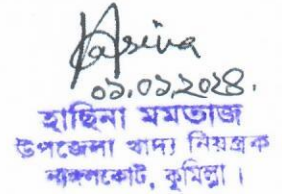 Hasina
০১.০১.২০২৪.
হাছিনা মমতাজ
উপজেলা খাদ্য নিয়ন্ত্রক
নাঙ্গলকোট, কুমিল্লা ।